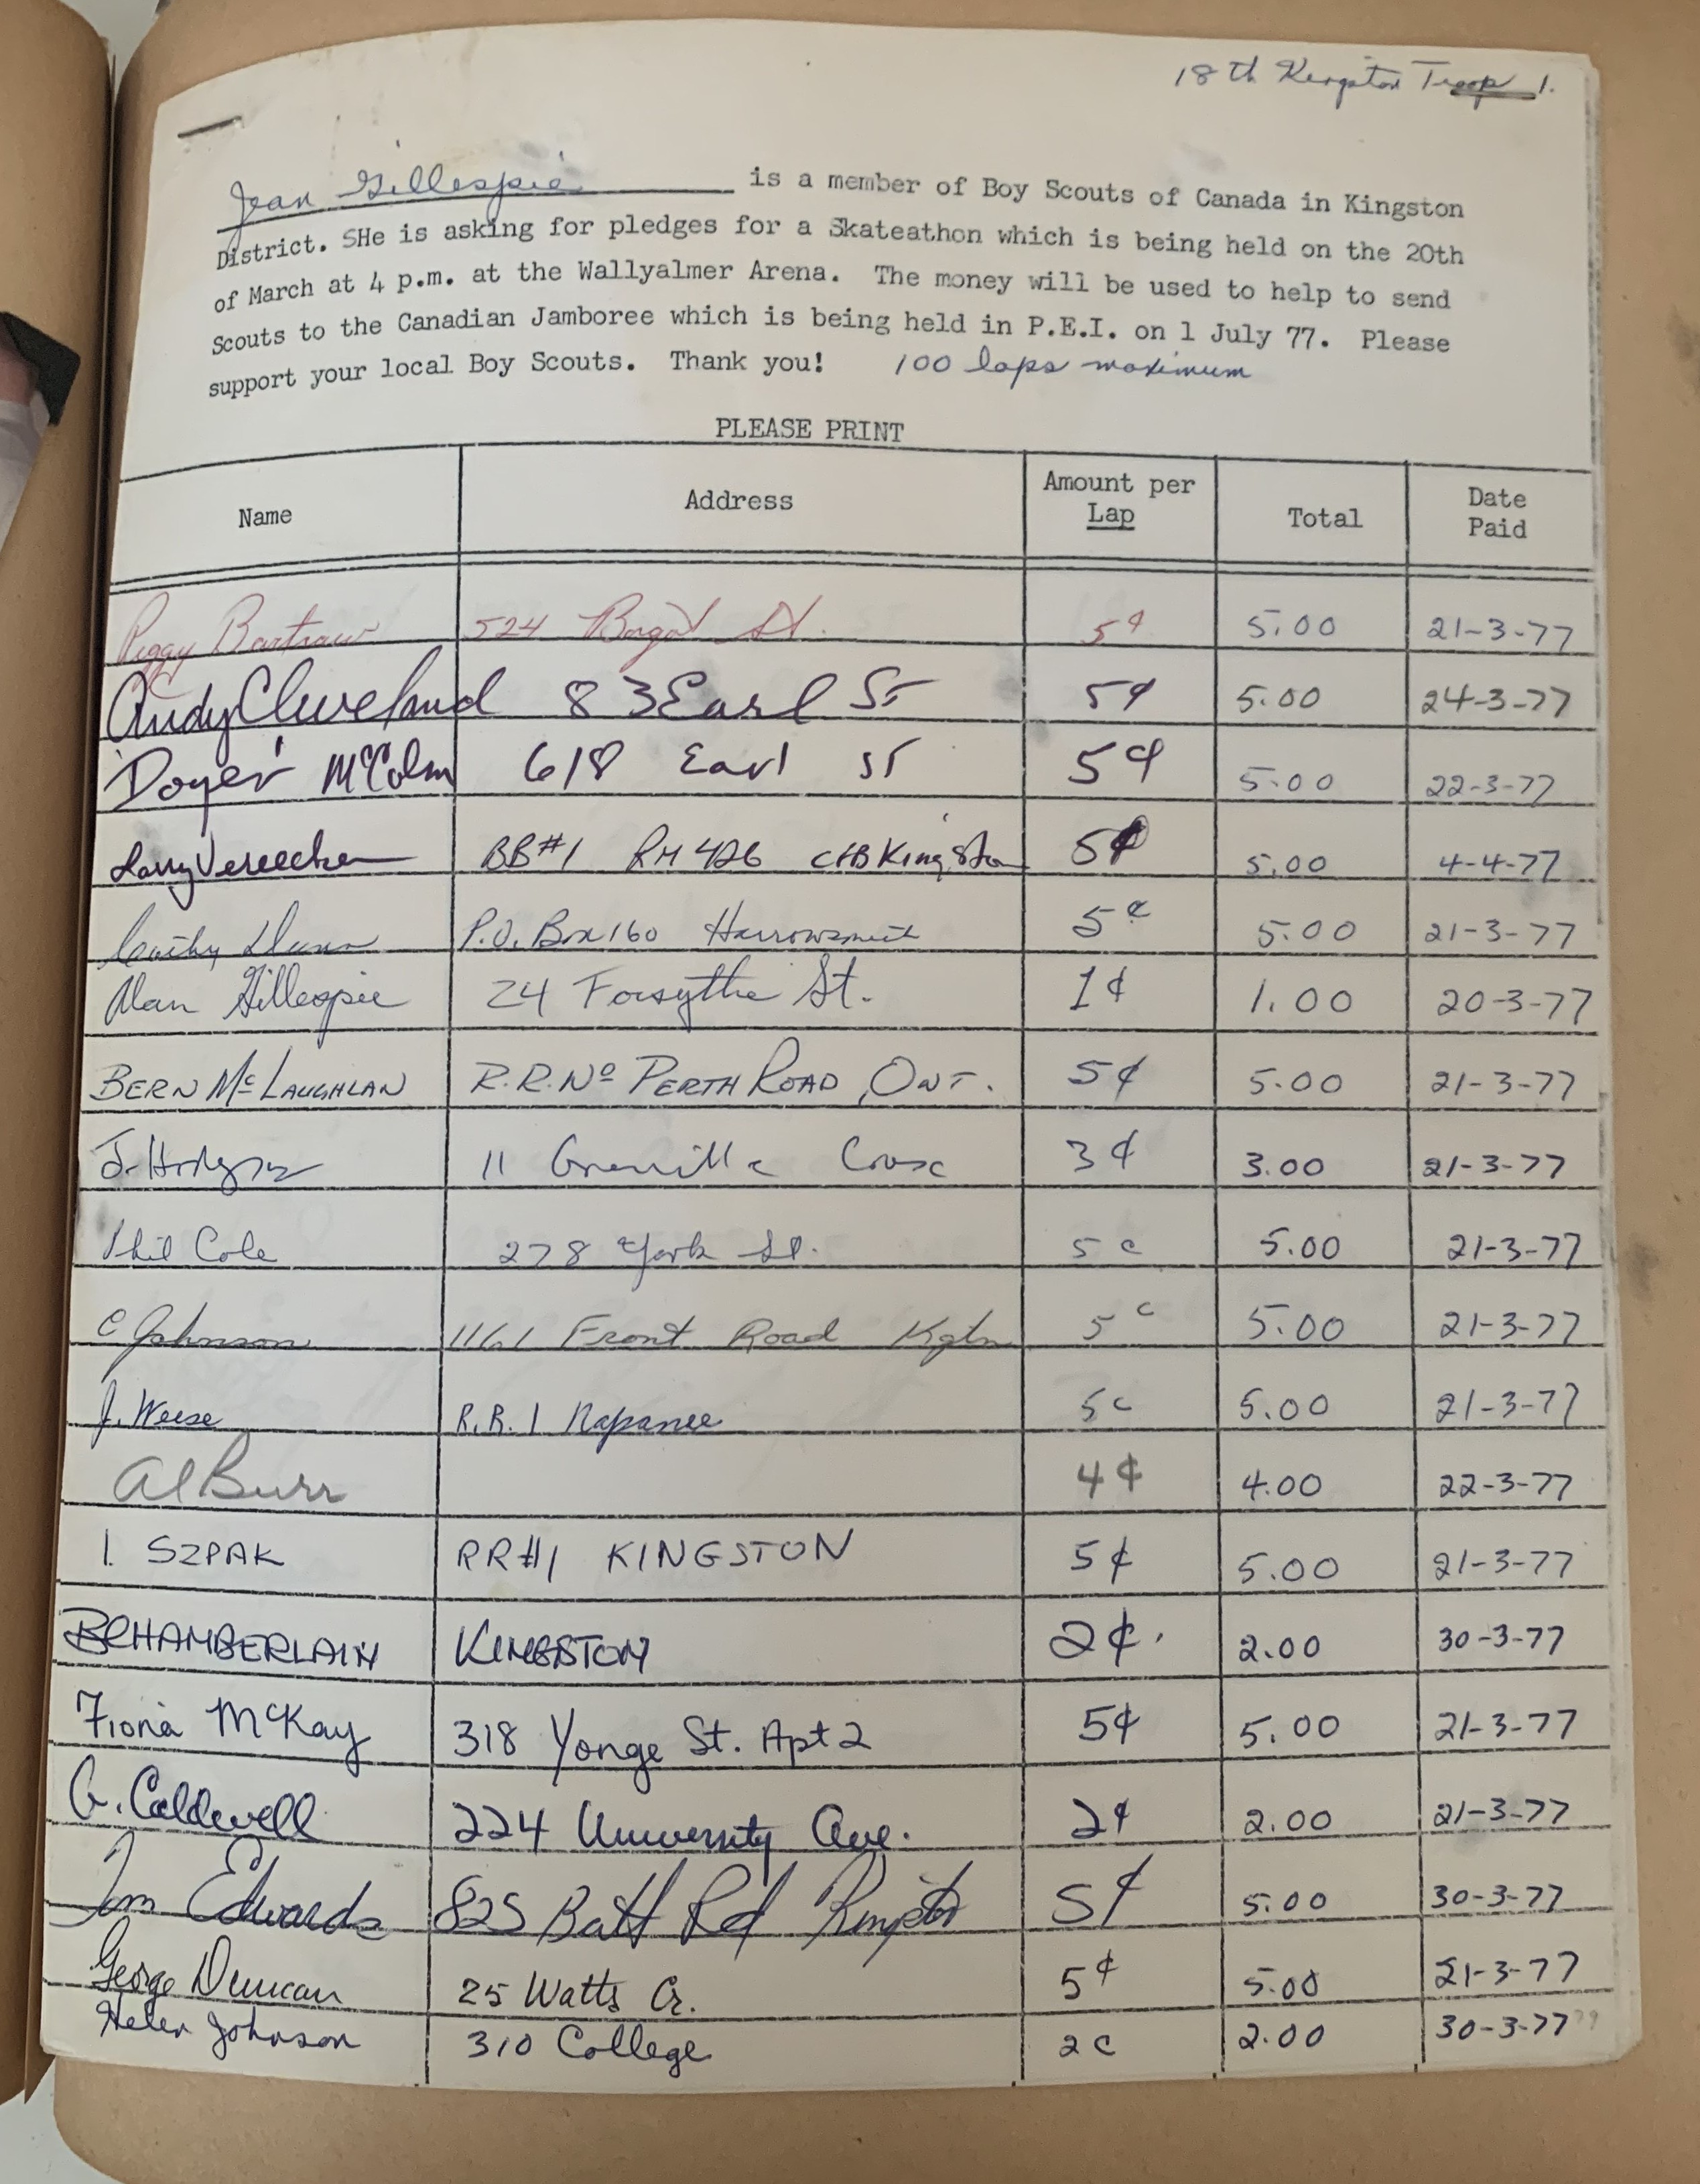 18th Kingston Troop 1.
Jean Gillespie is a member of Boy Scouts of Canada in Kingston
District. SHe is asking for pledges for a Skateathon which is being held on the 20th
of March at 4 p.m. at the Wallyalmer Arena. The money will be used to help to send
Scouts to the Canadian Jamboree which is being held in P.E.I. on 1 July 77. Please
support your local Boy Scouts. Thank you! 100 laps maximum
PLEASE PRINT
Name Address Amount per Lap Total Date Paid
Peggy 524 Bagot St. 5¢ 5.00 21-3-77
Andy Cleveland 83 Earl St 5¢ 5.00 24-3-77
"Doyer" McColm 618 Earl St 5¢ 5.00 22-3-77
Larry Vereecken BB#1 RM 426 CFB Kingston 5¢ 5.00 4-4-77
Cathy P.O. Box 160 Harrowsmith 5¢ 5.00 21-3-77
Alan Gillespie 24 Forsythe St. 1¢ 1.00 20-3-77
BERN McLAUGHLAN R.R.No PERTH ROAD, ONT. 5¢ 5.00 21-3-77
J. 11 Grenville 3¢ 3.00 21-3-77
Phil Cole 278 York St. 5c 5.00 21-3-77
C Johnson 1161 Front Road Kgtn 5c 5.00 21-3-77
J. Weese R.R.1 Napanee 5c 5.00 21-3-77
Al Burr 4¢ 4.00 22-3-77
I. SZPAK RR#1 KINGSTON 5¢ 5.00 21-3-77
B CHAMBERLAIN KINGSTON 2¢ 2.00 30-3-77
Fiona McKay 318 Yonge St. Apt 2 5¢ 5.00 21-3-77
G. Caldwell 224 University Ave. 2¢ 2.00 21-3-77
Tom Edwards 825 Batt Rd Kingston 5¢ 5.00 30-3-77
George Duncan 25 Watts Cr. 5¢ 5.00 21-3-77
Helen Johnson 310 College 2c 2.00 30-3-77